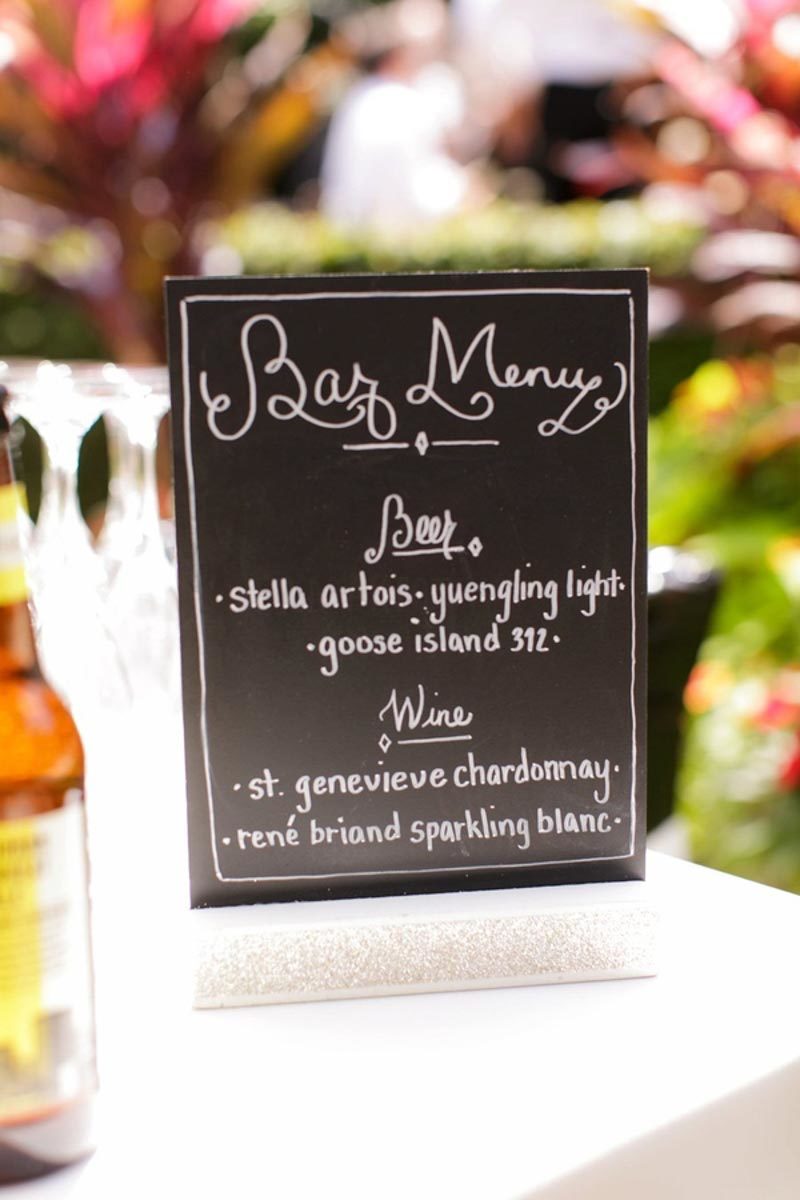 Bar Menu
Beer
·stella artois·yuengling light·
·goose island 312·
Wine
·st. genevieve chardonnay·
·rené briand sparkling blanc·